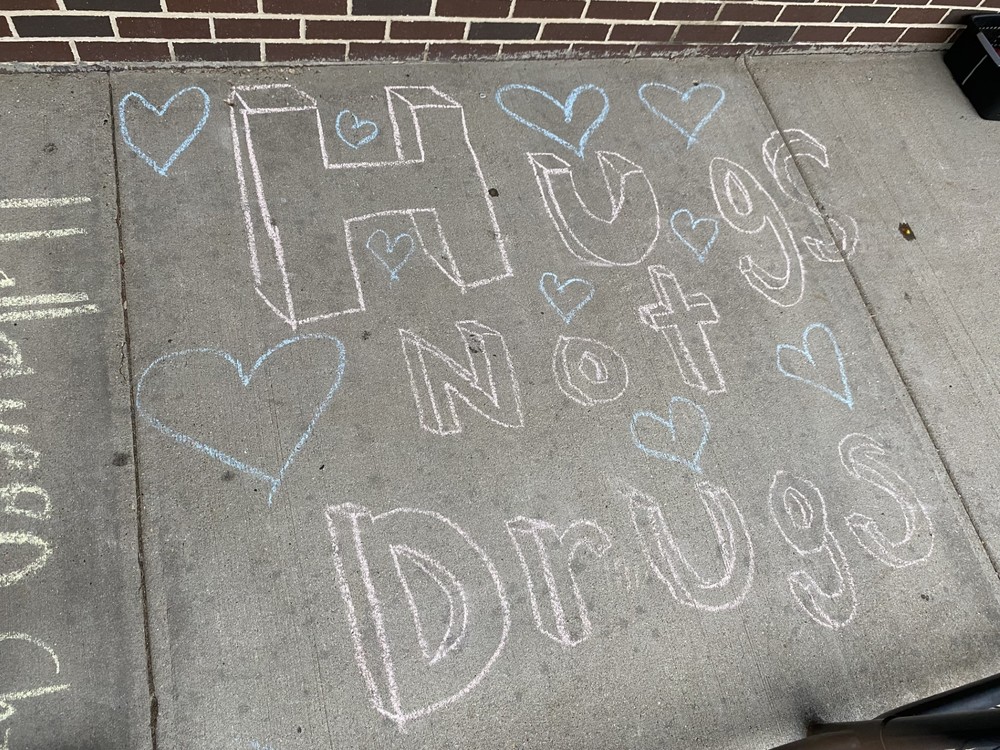 Hugs
Not
Drugs